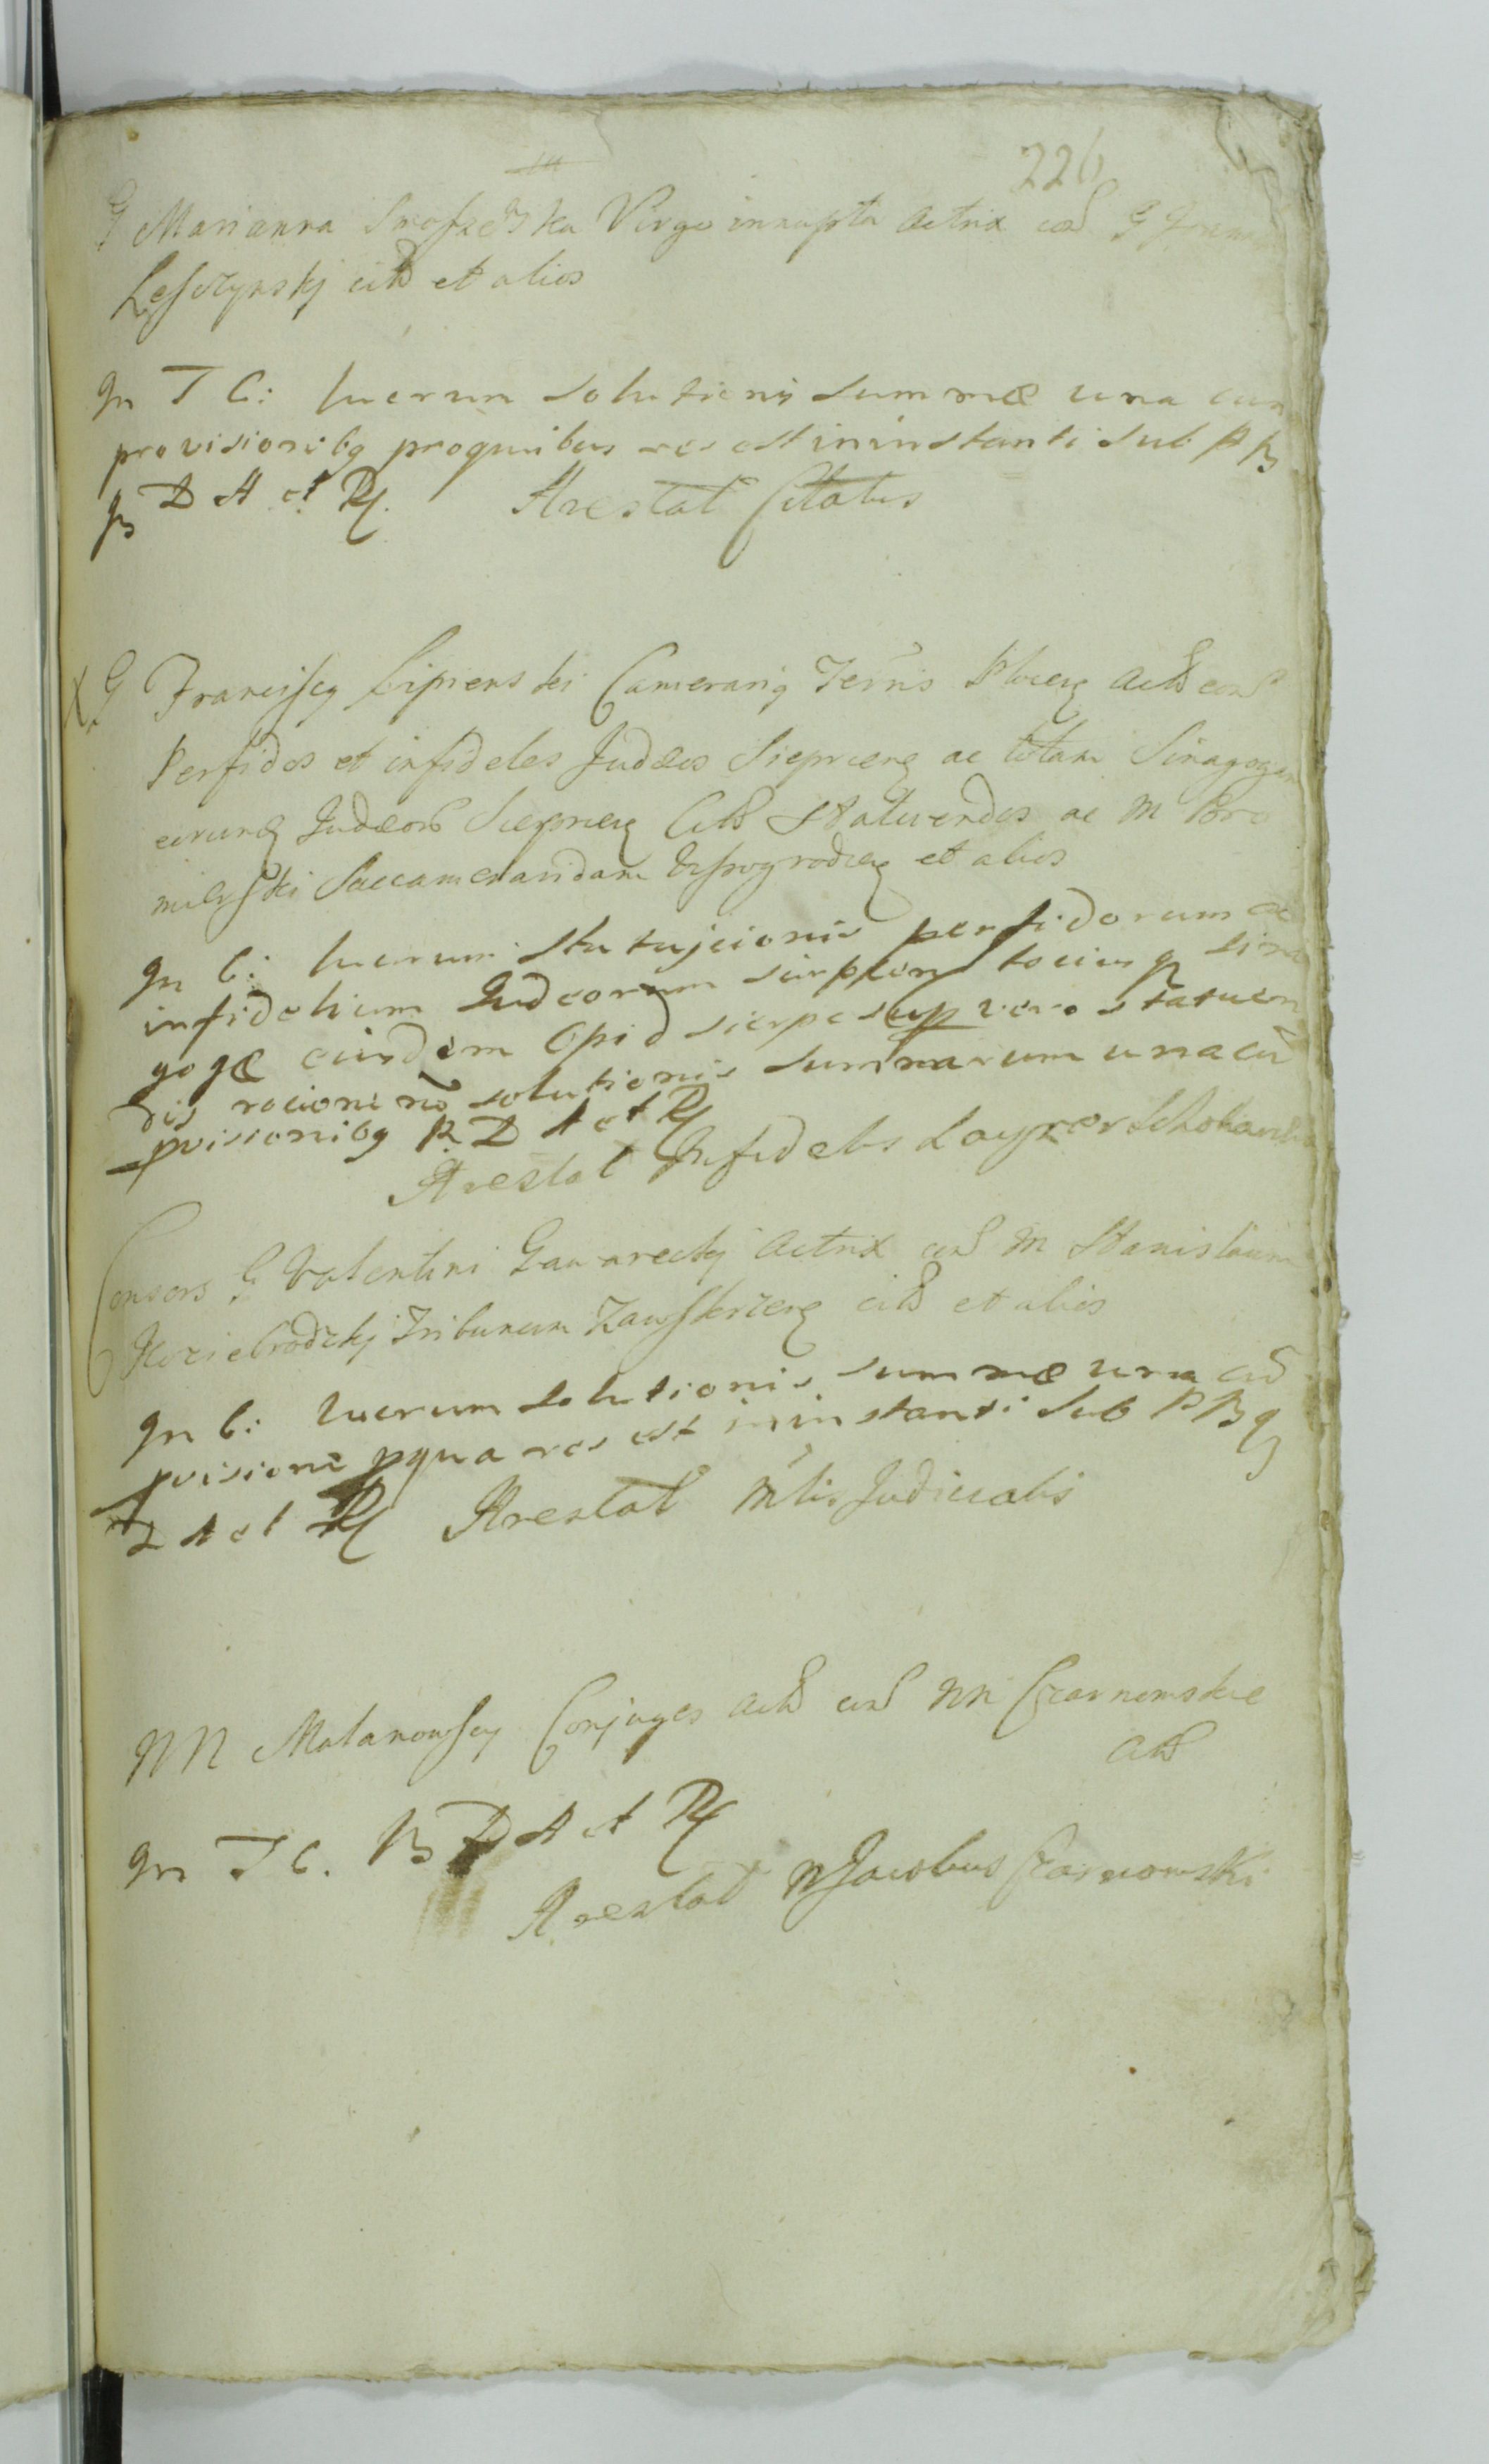 226
G Marianna Virgo innupta Actrix con G
Lesczynskj citt et alios
In T C: lucrum solutionis summæ una cum
provisionibg proquibus res est ininstanti sub P B
B D A et R. Arestat Citatus
X G Franciscg Lipienski Camerarig Terris Plocen Act con
Perfidos et infideles Judæos Sieprcen ac totam Sinagogam
eorund Judæor Sieprcen Citt Statuendos ac M
milski Succameraridam Wyssogrodien et alios
In C: lucrum statujcionis perfidorum ac
infidelium Judeorum sierpcen tociusq sina
gogæ eiusdem Opid sierpc sup vero statuen
dis racione no solutionis summarum una cu
pvisionibg R D A et R
Arestat Infidelis Layzer
Consors G Valentini Gawareckj Actrix con M Stanislaum
Koziebrodzkj Tribunum Zawskrzen citt et alios
In C: lucrum solutionis summæ una cu
pvisione pqua res est ininstanti sub P B q
D A et R Arestat Mlis Judicialis
MM Malanowscy Conjuges Act con NN Czarnomskie
Citt
In T C. B D A et R
Arestat N Jacobus Czarnomski